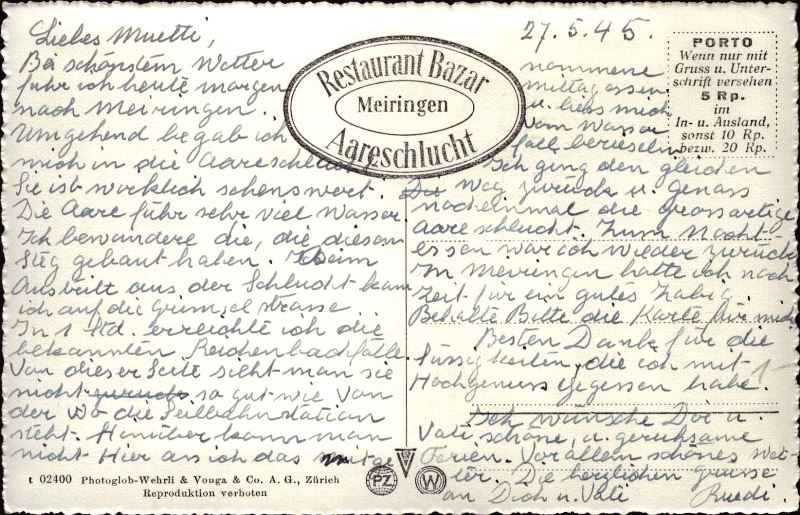 Liebes Muetti,
Bei schönstem Wetter
fuhr ich heute morgen
nach Meiringen.
Umgehend begab ich
mich in die Aareschlucht.
Sie ist wirklich sehenswert.
Die Aare führ sehr viel Wasser.
Ich bewundere die, die diesen
Steg gebaut haben. Beim
Austritt aus der Schlucht kam
ich auf die Grimselstrasse.
In 1 Std. erreichte ich die
bekannten Reichenbachfälle.
Von dieser Seite sieht man sie
nicht zurück so gut wie von
der wo die Seilbahnstation
steht. Hinüber kann man
nicht Hier ass ich das mitge
27.5.45.
nommene
Mittagessen
u. liess mich
vom Wasser
fall berieseln
Ich ging den gleichen
Weg zurück u. genoss
nocheinmal die grossartige
Aareschlucht. Zum Nacht-
essen war ich wieder zurück
In Meiringen hatte ich noch
Zeit für ein gutes Zabig.
Behalte Bitte die Karte für mich
Besten Dank für die
Süssigkeiten, die ich mit
Hochgenuss gegessen habe.
Ich wünsche Dir u.
Vati schöne, u. geruhsame
Ferien. Vor allem schönes Wet-
ter. Die herzlichen Grüsse
an Dich u. Vati Ruedi.
Restaurant Bazar
Meiringen
Aareschlucht
PORTO
Wenn nur mit
Gruss u. Unter-
schrift versehen
5 Rp.
im
In- u. Ausland,
sonst 10 Rp.
bezw. 20 Rp.
t 02400 Photoglob-Wehrli & Vouga & Co. A. G., Zürich
Reproduktion verboten
PZ
W